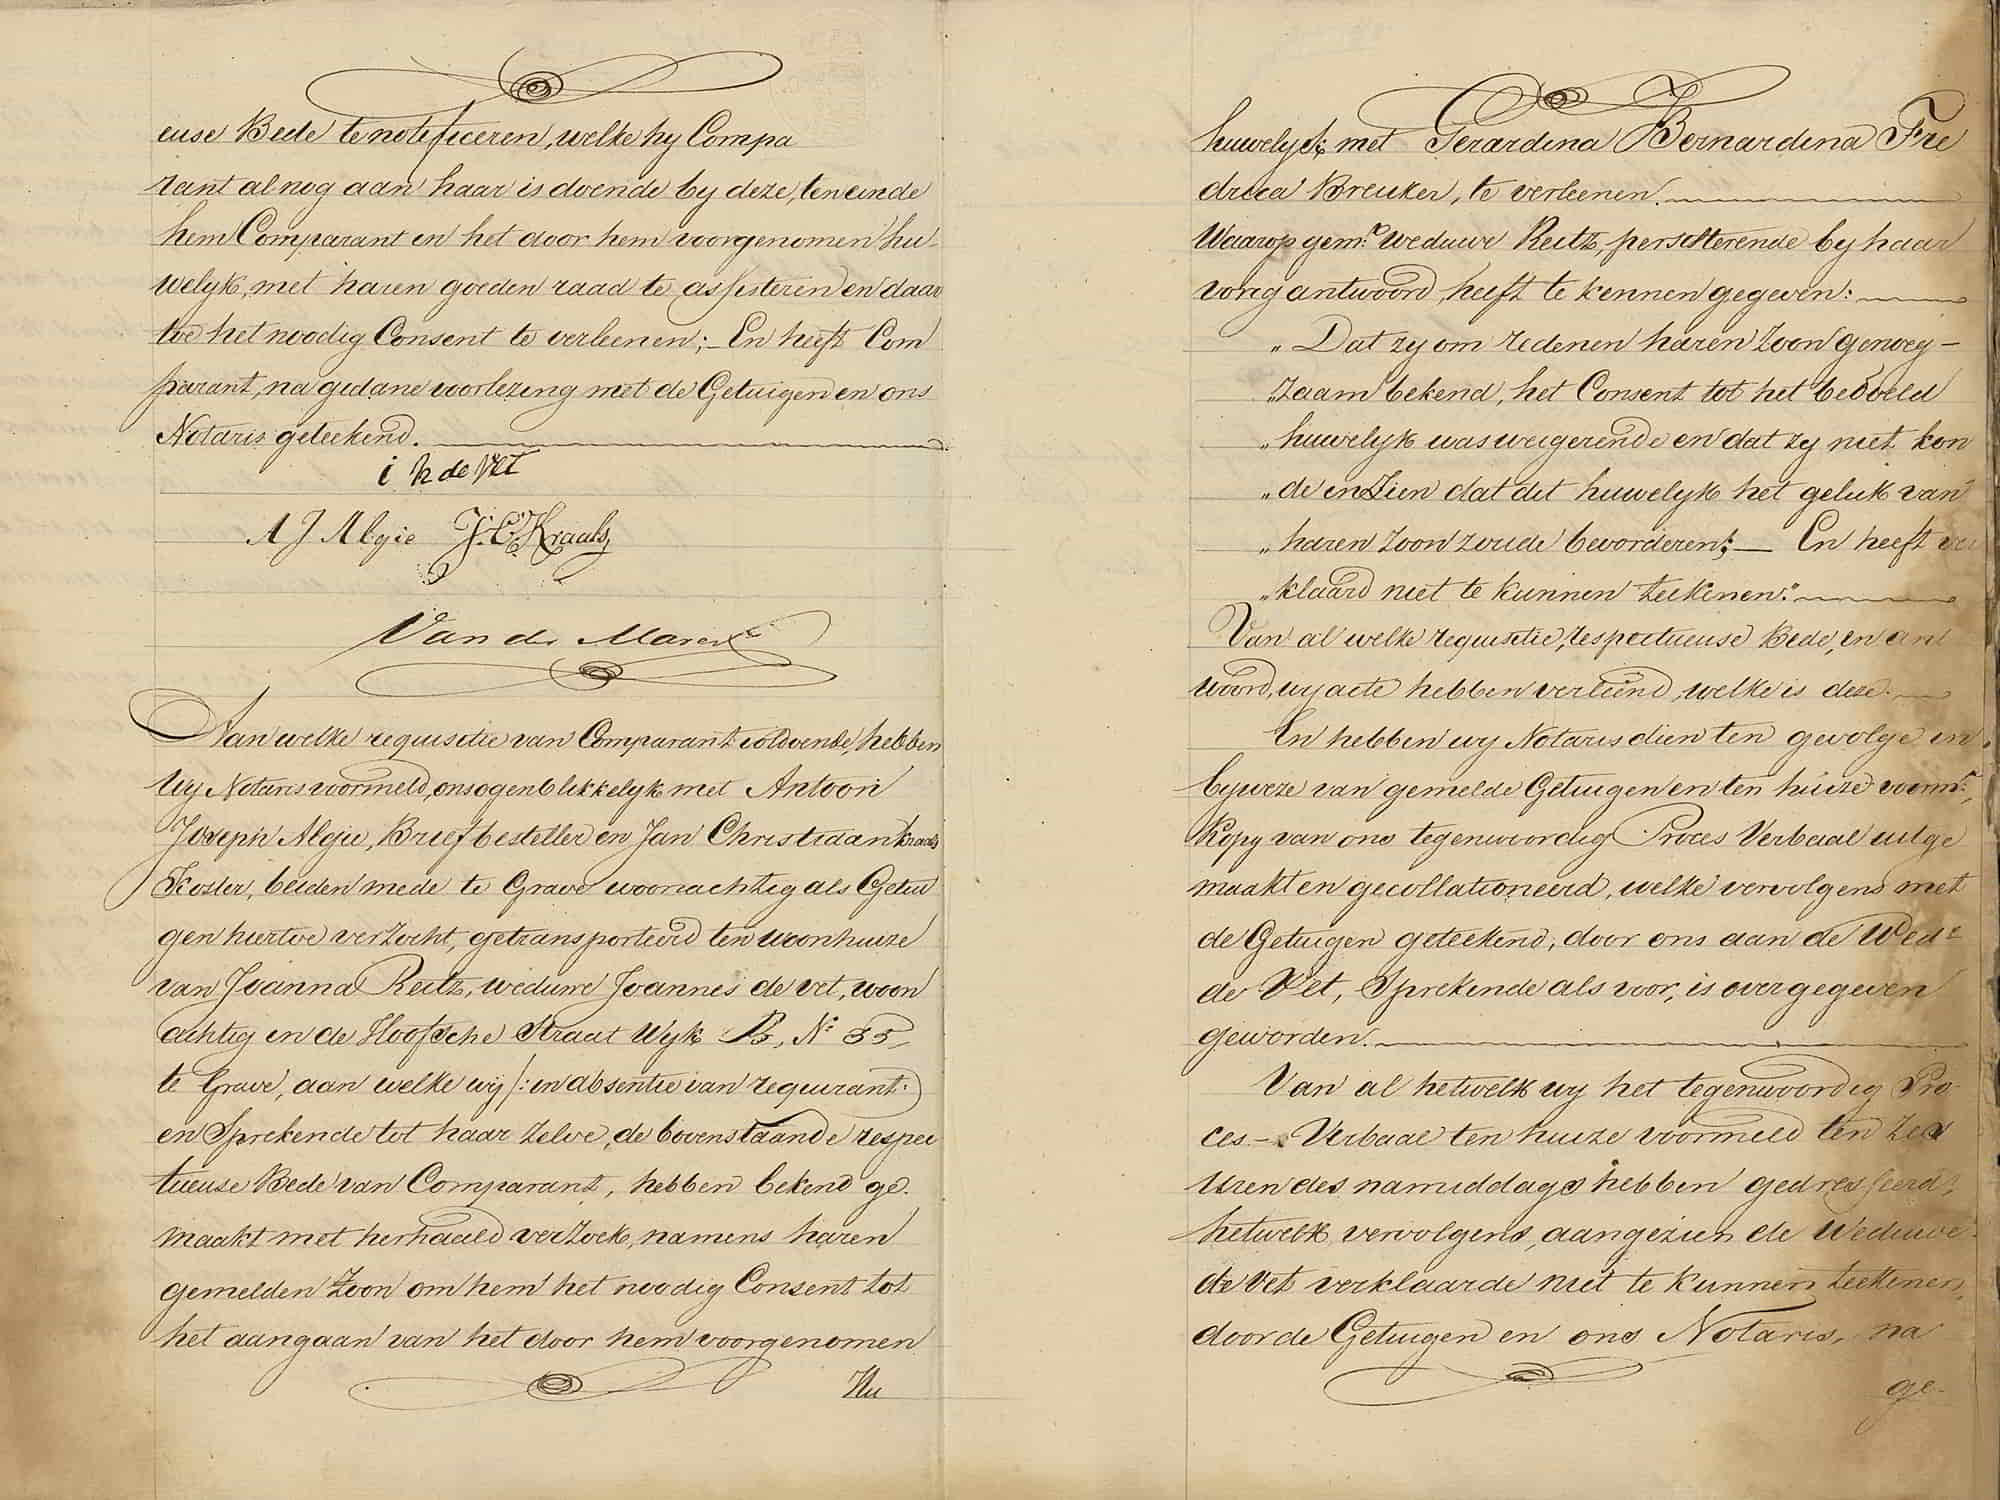 euse Bede te notificeren, welke hy Compa
rant al nog aan haar is doende by deze, ten einde
hem Comparant en het door hem voorgenomen hu-
welyk, met haren goeden raad te assisteren en daar
toe het noodig Consent te verleenen; – En heeft Com
parant, na gedane voorlezing met de Getuigen en ons
Notaris geteekend.
i h de vet
A J Algie J. C. Kraals
Van der Marck
Aan welke requisitie van Comparant voldoende, hebben
Wy Notaris voormeld, ons ogenblikkelyk met Antoon
Joseph Algie, Briefbesteller en Jan Christiaan Kraals
Koster, beiden mede te Grave woonachtig als Getui
gen hiertoe verzocht, getransporteerd ten woonhuize
van Joanna Reitz, weduwe Joannes de vet, woon
achtig in de Hoofsche Straat Wyk B, No 35,
te Grave, aan welke wij /: in absentie van requirant:
en Sprekende tot haar zelve, de bovenstaande respec
tueuse Bede van Comparant, hebben bekend ge.
maakt met herhaald verzoek, namens haren
gemelden Zoon om hem het noodig Consent tot
het aangaan van het door hem voorgenomen
Hu
huwelyk; met Gerardina Bernardina Fre
drica Breuker, te verleenen.
Waarop gem.e weduwe Reitz, persisterende by haar
vorig antwoord, heeft te kennen gegeven:
„ Dat zy om redenen haren Zoon genoeg –
„ zaam bekend, het Consent tot het bedoeld
„ huwelyk was weigerende en dat zy niet kon
„ de inzien dat dit huwelyk het geluk van
„ haren Zoon zoude bevorderen; – En heeft ver
„ klaard niet te kunnen teekenen."
Van al welke requisitie, respectueuse Bede, en ant
woord, wy acte hebben verleend, welke is deze.
En hebben wy Notaris dien ten gevolge in
byweze van gemelde Getuigen en ten huize voorm.d,
Kopy van ons tegenwoordig Proces Verbaal uitge
maakt en gecollationeerd, welke vervolgens met
de Getuigen geteekend, door ons aan de Wed.e
de Vet, Sprekende als voor, is overgegeven
geworden.
Van al hetwelk wy het tegenwoordig Pro
ces – Verbaal ten huize voormeld ten zes
Uren des namiddags hebben gedresseerd,
hetwelk vervolgens, aangezien de Weduwe
de Vet verklaarde niet te kunnen teekenen,
door de Getuigen en ons Notaris, na
ge-